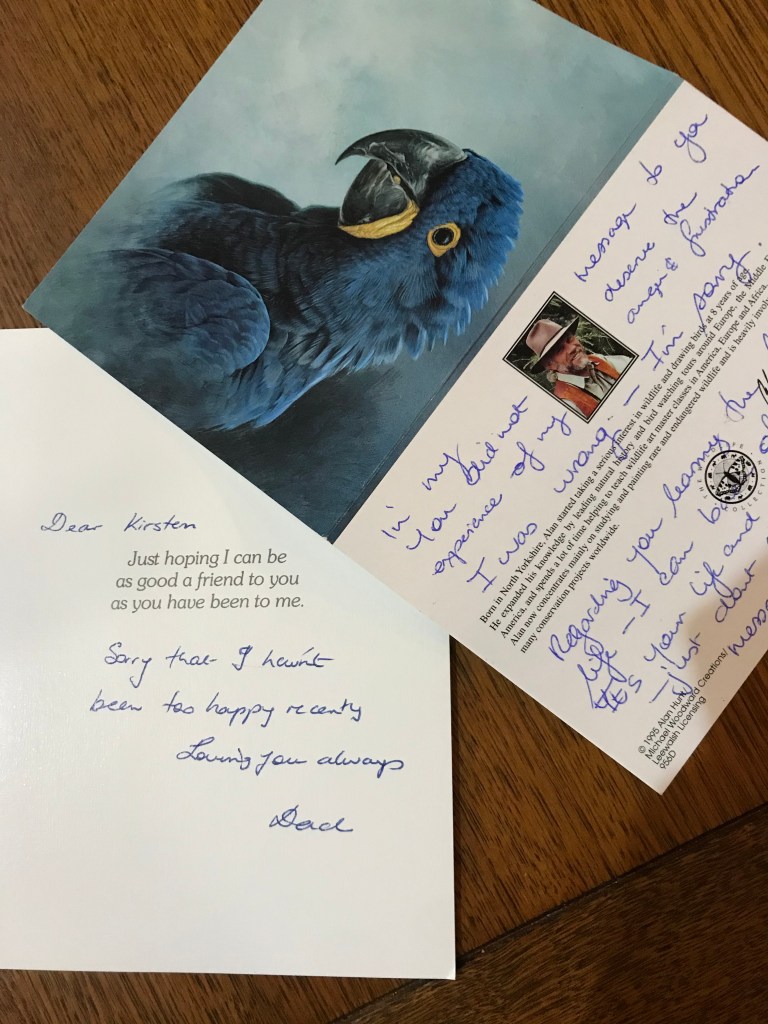 Dear Kirsten
Just hoping I can be
as good a friend to you
as you have been to me.
Sorry that I havn't
been too happy recently
Loving you always
Dad
in my message to yo
You did not deserve the
experience of my anger & frustration
I was wrong. – I'm sorry
Born in North Yorkshire, Alan started taking a serious interest in wildlife and drawing birds at 8 years of age.
He expanded his knowledge by leading natural history and bird watching tours around Europe, the Middle E
America, and spends a lot of time helping to teach wildlife art master classes in America, Europe and Africa.
Alan now concentrates mainly on studying and painting rare and endangered wildlife and is heavily involv
many conservation projects worldwide.
THE
COLLECTION
Regarding you leaving the
life – I can b
ITS your life and
– just about
messa
© 1995 Alan Hunt/
Michael Woodward Creations/
Leewalsh Licensing
956D